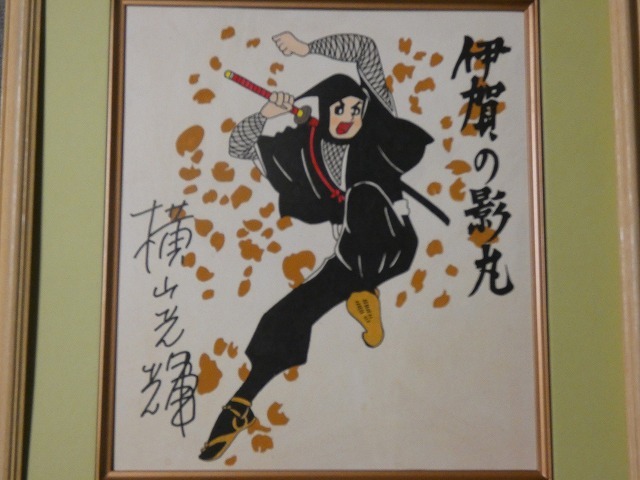 伊賀の影丸
横山光輝